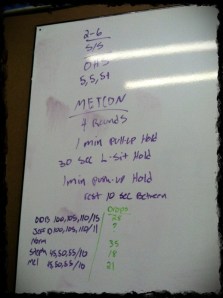 2-6
S/S
OHS
5,5,5+
METCON
4 Rounds
1 min pull-up Hold
30 Sec L-Sit Hold
1 min push-up Hold
rest 10 sec Between
Drops
DOB 100,105,110/15 28
100,105,110/11
Mom
35
Steph 45,50,55/10 18
Mel 45,50,55/10 21